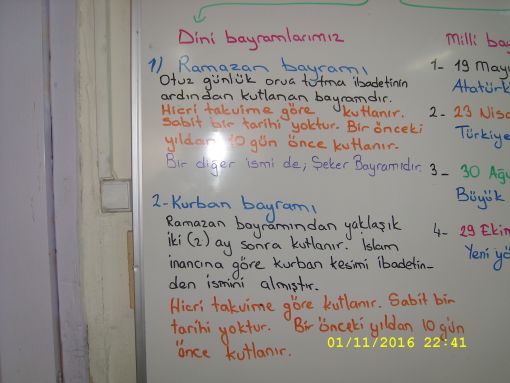 Dini bayramlarımız
1) Ramazan bayramı
Otuz günlük oruç tutma ibadetinin
ardından kutlanan bayramdır.
Hicri takvime göre kutlanır.
Sabit bir tarihi yoktur. Bir önceki
yıldan 10 gün önce kutlanır.
Bir diğer ismi de, Şeker Bayramıdır.
2-Kurban bayramı
Ramazan bayramından yaklaşık
iki (2) ay sonra kutlanır. İslam
inancına göre kurban kesimi ibadetin-
den ismini almıştır.
Hicri takvime göre kutlanır. Sabit bir
tarihi yoktur. Bir önceki yıldan 10 gün
önce kutlanır.
Milli
1- 19
2- 23
3- 30
Büyük
4- 29 Ekim
Yeni
01/11/2016 22:41